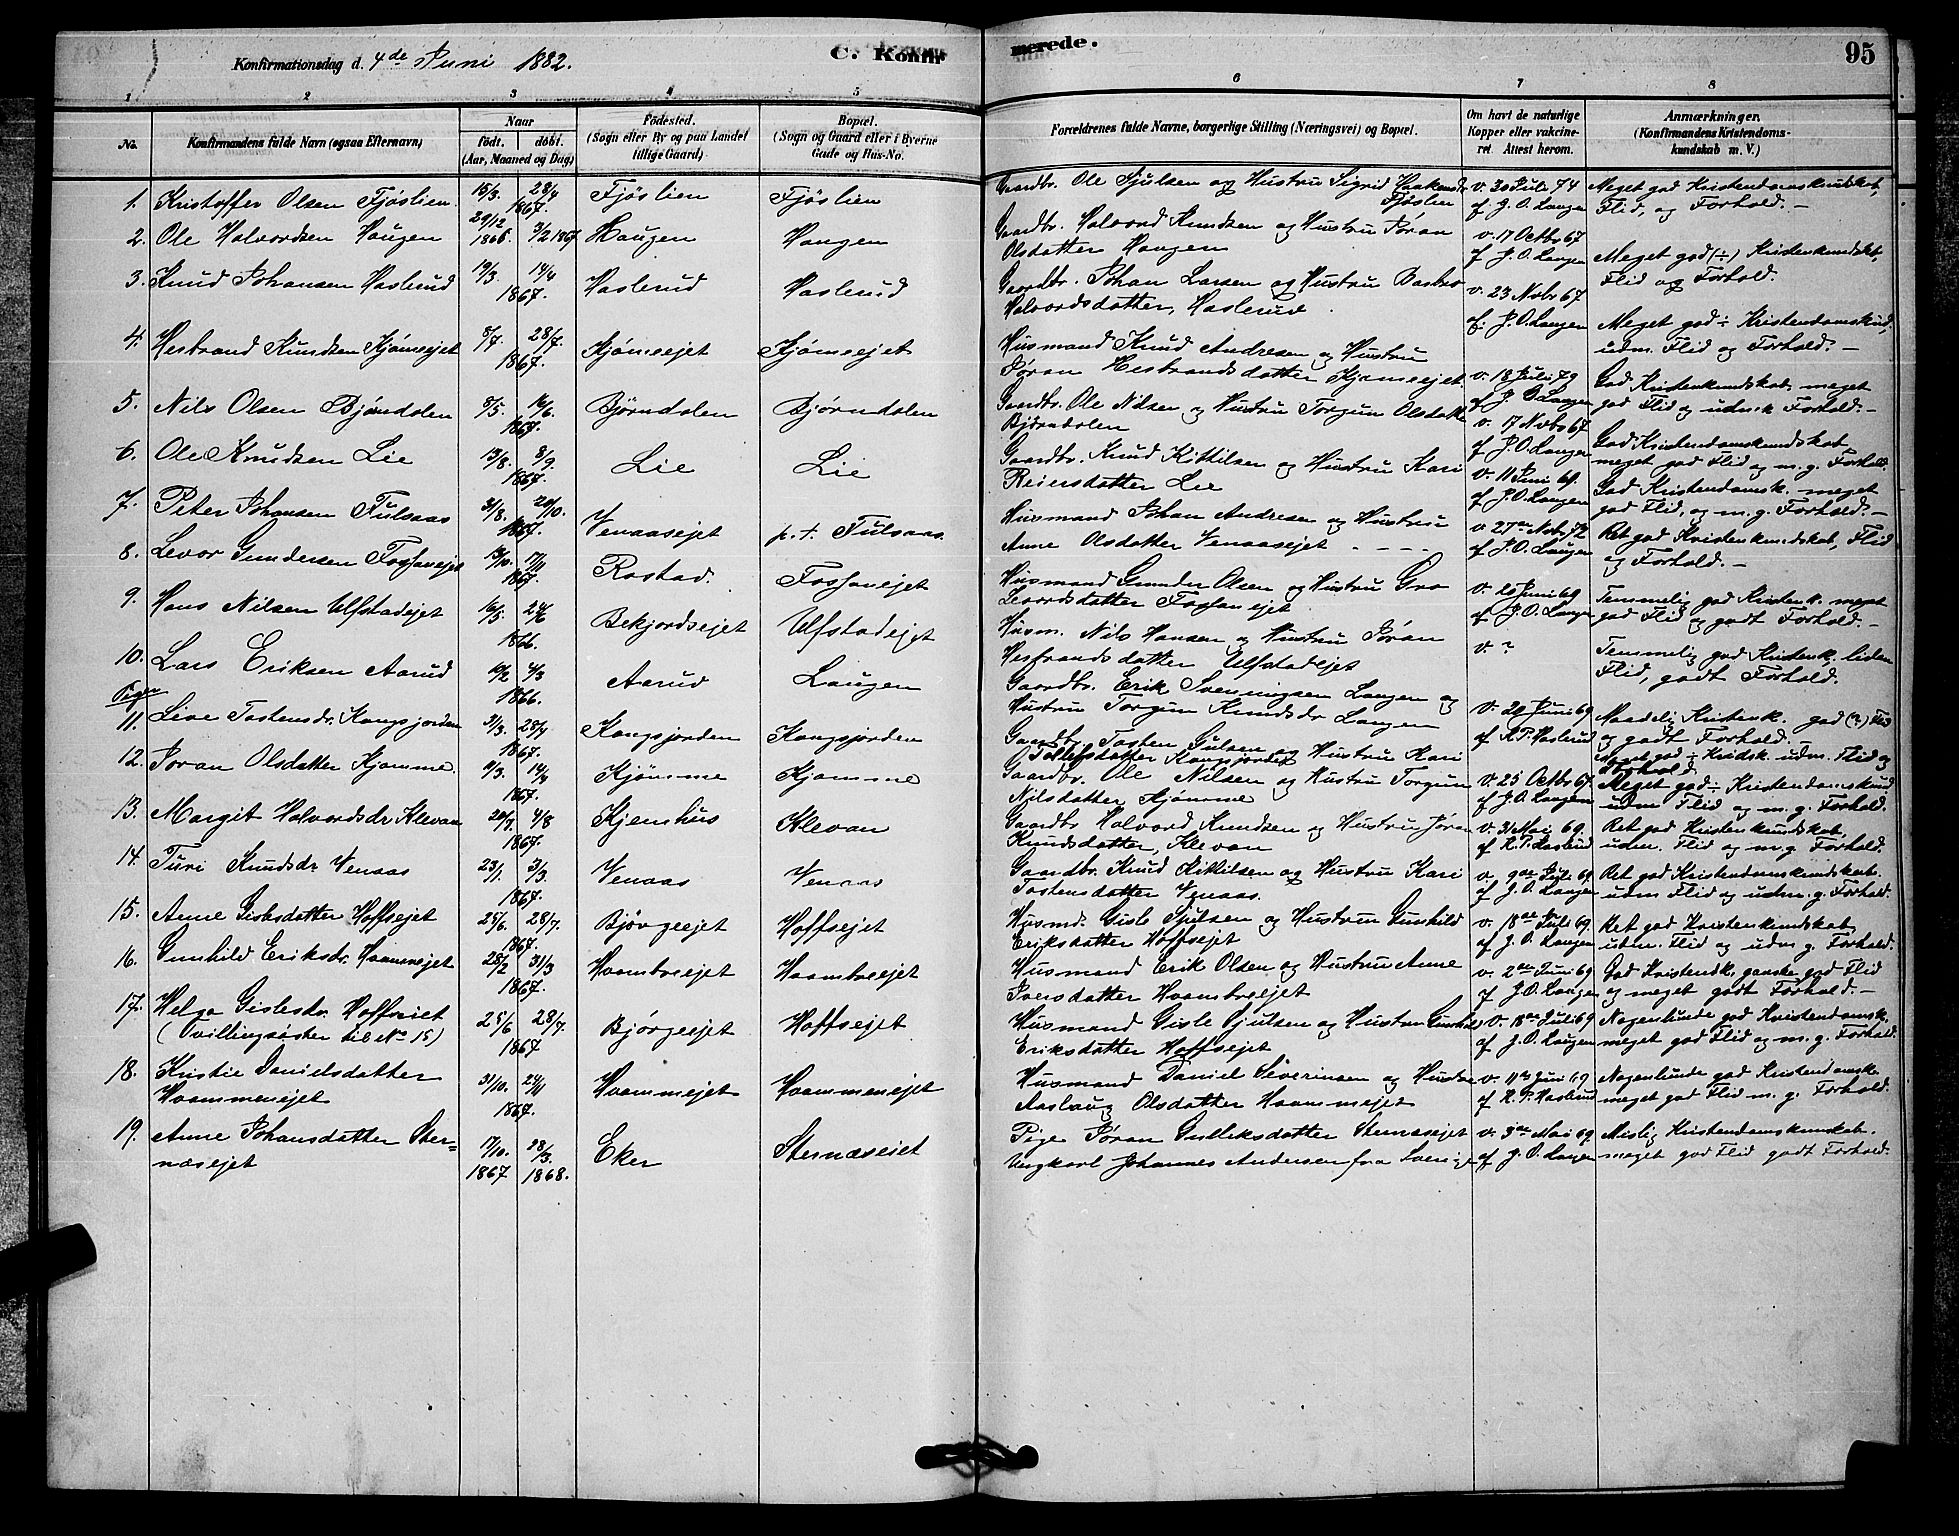 Konfirmationsdag d. 4de Juni 1882.
C. Konfir
merede.
95
1 2 3 4 5 6 7 8
No.
Konfirmandens fulde Navn (ogsaa Efternavn)
Naar
født. døbt.
(Aar, Maaned og Dag)
Fødested.
(Sogn eller By og paa Landet
tillige Gaard)
Bopæl.
(Sogn og Gaard eller i Byerne
Gade og Hus-No.
Forældrenes fulde Navne, borgerlige Stilling (Næringsvei) og Bopæl.
Om havt de naturlige
Kopper eller vakcine-
ret. Attest herom.
Anmærkninger.
(Konfirmandens Kristendoms-
kundskab m. V.)
1. Kristoffer Olsen Fjøslien 15/3 28/4 1867. Fjøslien Fjøslien
Gaardbr. Ole Sjulsen og Hustru Sigrid Haakensdr Fjøslien
v. 30 Juli 74 af J. O. Langen
Meget god Kristendomskundskab, Flid, og Forhold.-
2. Ole Halvordsen Haugen 29/12 1866. 3/2 1867 Haugen Haugen
Gaardbr. Halvord Knudsen og Hustru Jøran
Olsdatter Haugen
v. 17 Octbr 67 af J. O. Langen
Meget god (÷) Kristenkundskb, Flid og Forhold.
3. Knud Johansen Haslerud 19/3 14/4 1867. Haslerud Haslerud
Gaardbr. Johan Larsen og Hustru Barbro
Halvordsdatter, Haslerud.
v. 23 Novbr 67 af J. O. Langen
Meget god ÷ Kristendomskund. udm. Flid og Forhold.-
4. Hesbrand Knudsen Kjømeejet 8/7 28/7. 1867. Kjømeejet Kjømeejet
Husmand Knud Andresen og Hustru
Jøran Hesbrandsdatter Kjømeejet
v. 18 Juli 79 af J. O. Langen
God Kristenkundskab, meget god Flid og udm.k Forhold.-
5. Nils Olsen Bjørndalen 8/5 16/6. 1867. Bjørndalen Bjørndolen
Gaardbr. Ole Nilsen og Hustru Torgun Olsdatter
Bjørndalen
v. 17 Novbr 67 af J. O. Langen
God Kristendomskundskab meget god Flid og m. g. Forhold.
6. Ole Knudsen Lie 13/8. 8/9. 1867. Lie Lie
Gaardbr. Knud Kittilsen og Hustru Kari
Reiersdatter Lie
v. 11 Juni 69. af J. O. Langen
God Kristendomsk. meget god Flid, og m. g. Forhold.-
7. Peter Johansen Fulsaas 31/8. 20/10. 1867. Venaasejet p. t. Fulsaas.
Husmand Johan Andresen og Hustru
Anne Olsdatter Venaasejet - - - -
v. 27de Nvbr. 72 af J. O. Langen
Ret god Kristenkundskab, Flid og Forhold.-
8. Levor Gundersen Fossavejet 13/10. 17/11 1867. Rostad. Fossavejet
Husmand Gunder Olsen og Hustru Gro
Levordsdatter Fossavejet
v. 20 Juni 69 af J. O. Langen
Temmelig god Kristenk. meget god Flid og godt Forhold.-
9. Hans Nilsen Ulfstadejet 16/5. 24/6 1866. Bekjordsejet Ulfstadejet
Husm. Nils Hansen og Hustru Jøran
Hesbrandsdatter Ulfstadejet
v. ?
Temmelig god Kristenk. liden Flid, godt Forhold.
10. Lars Eriksen Aarud 10/2 4/3 1866. Aarud Langen
Gaardbr. Erik Svenningsen Langen og
Hustru Torgun Knudsdr Langen
Piger
11. Live Tostensdr. Kongsjorden 31/3. 28/4 1867. Kongsjorden Kongsjorden
Gaardbr. Tosten Sjulsen og Hustru Kari
Tollefsdatter Kongsjordet
v. 20 Juni 69 af K. P. Haslerud
Maadelig Kristenk. god (?) Flid og godt Forhold.-
12. Jøran Olsdatter Kjømme. 9/3. 14/4 1867. Kjømme Kjømme
Gaardbr. Ole Nilsen og Hustru Torgun
Nilsdatter Kjømme
v. 25 Octbr 67. af J. O. Langen
Meget god ÷ Kristendomskund udm. Flid og m. g. Forhold.
13. Margit Halvordsdr. Klevan 20/7. 4/8 1867. Kjemhus Klevan
Gaardbr Halvord Knudsen og Hustru Jøran
Knudsdatter, Klevan
v. 31 Mai 69. af K. P. Haslerud
Ret god Kristenkundskab, udm. Flid og m. g. Forhold.
14. Turi Knudsdr Venaas 23/1. 3/3. 1867. Venaas Venaas
Gaardbr. Knud Kittilsen og Hustru Kari
Tostensdatter Venaas.
v. 9de Juli 69. af J. O. Langen
Ret god Kristendomskundskab. udm Flid og udm. g. Forhold.
15. Anne Gislesdatter Hoffsejet 25/6. 28/7. 1867. Bjørgeejet Hoffsejet
Husmd. Gisle Sjulsen og Hustru Gunhild
Eriksdatter Hoffsejet
v. 18de Juli 69. af J. O. Langen
Ret god Kristenkundskab, udm. Flid og udm g. Forhold.
16. Gunhild Eriksdr. Haammejet 28/2 31/3 1867. Haambreejet Haambreejet
Husmand Erik Olsen og Hustru Anne
Iversdatter Haambreejet
v. 2de Juni 69 af J. O. Langen
God Kristendk. ganske god Flid og meget godt Forhold.-
17. Helga Gislesdr. Hoffseiet
(Tvillingsøster til No 15) 25/6 28/7. 1867 Bjørgeejet Hoffsejet
Husmand Gisle Sjulsen og Hustru Gunhild
Eriksdatter Hoffsejet
v. 18de Juli 69 af J. O. Langen
Nogenlunde god Kristendomsk. meget god Flid og m. g. Forhold.
18. Kristie Danielsdatter
Haammenejet 31/10. 24/11 1867. Haammejet Haammenejet
Husmand Daniel Severinsen og Hustru
Aaslaug Olsdatter Haammejet
v. 11te Juni 69 af K. P. Haslerud
Nogenlunde god Kristendomsk meget god Flid m. g. Forhold.
19. Anne Johansdatter Ster=
næsejet 17/10. 1867 28/3. 1868. Eker Sternæseiet
Pige Jøran Gulliksdatter Sternæsejet
Ungkarl Johannes Andersen fra Sverige
v. 3de Mai 69. af J. O. Langen
Mislig Kristendomskundskab. meget god Flid godt Forhold.